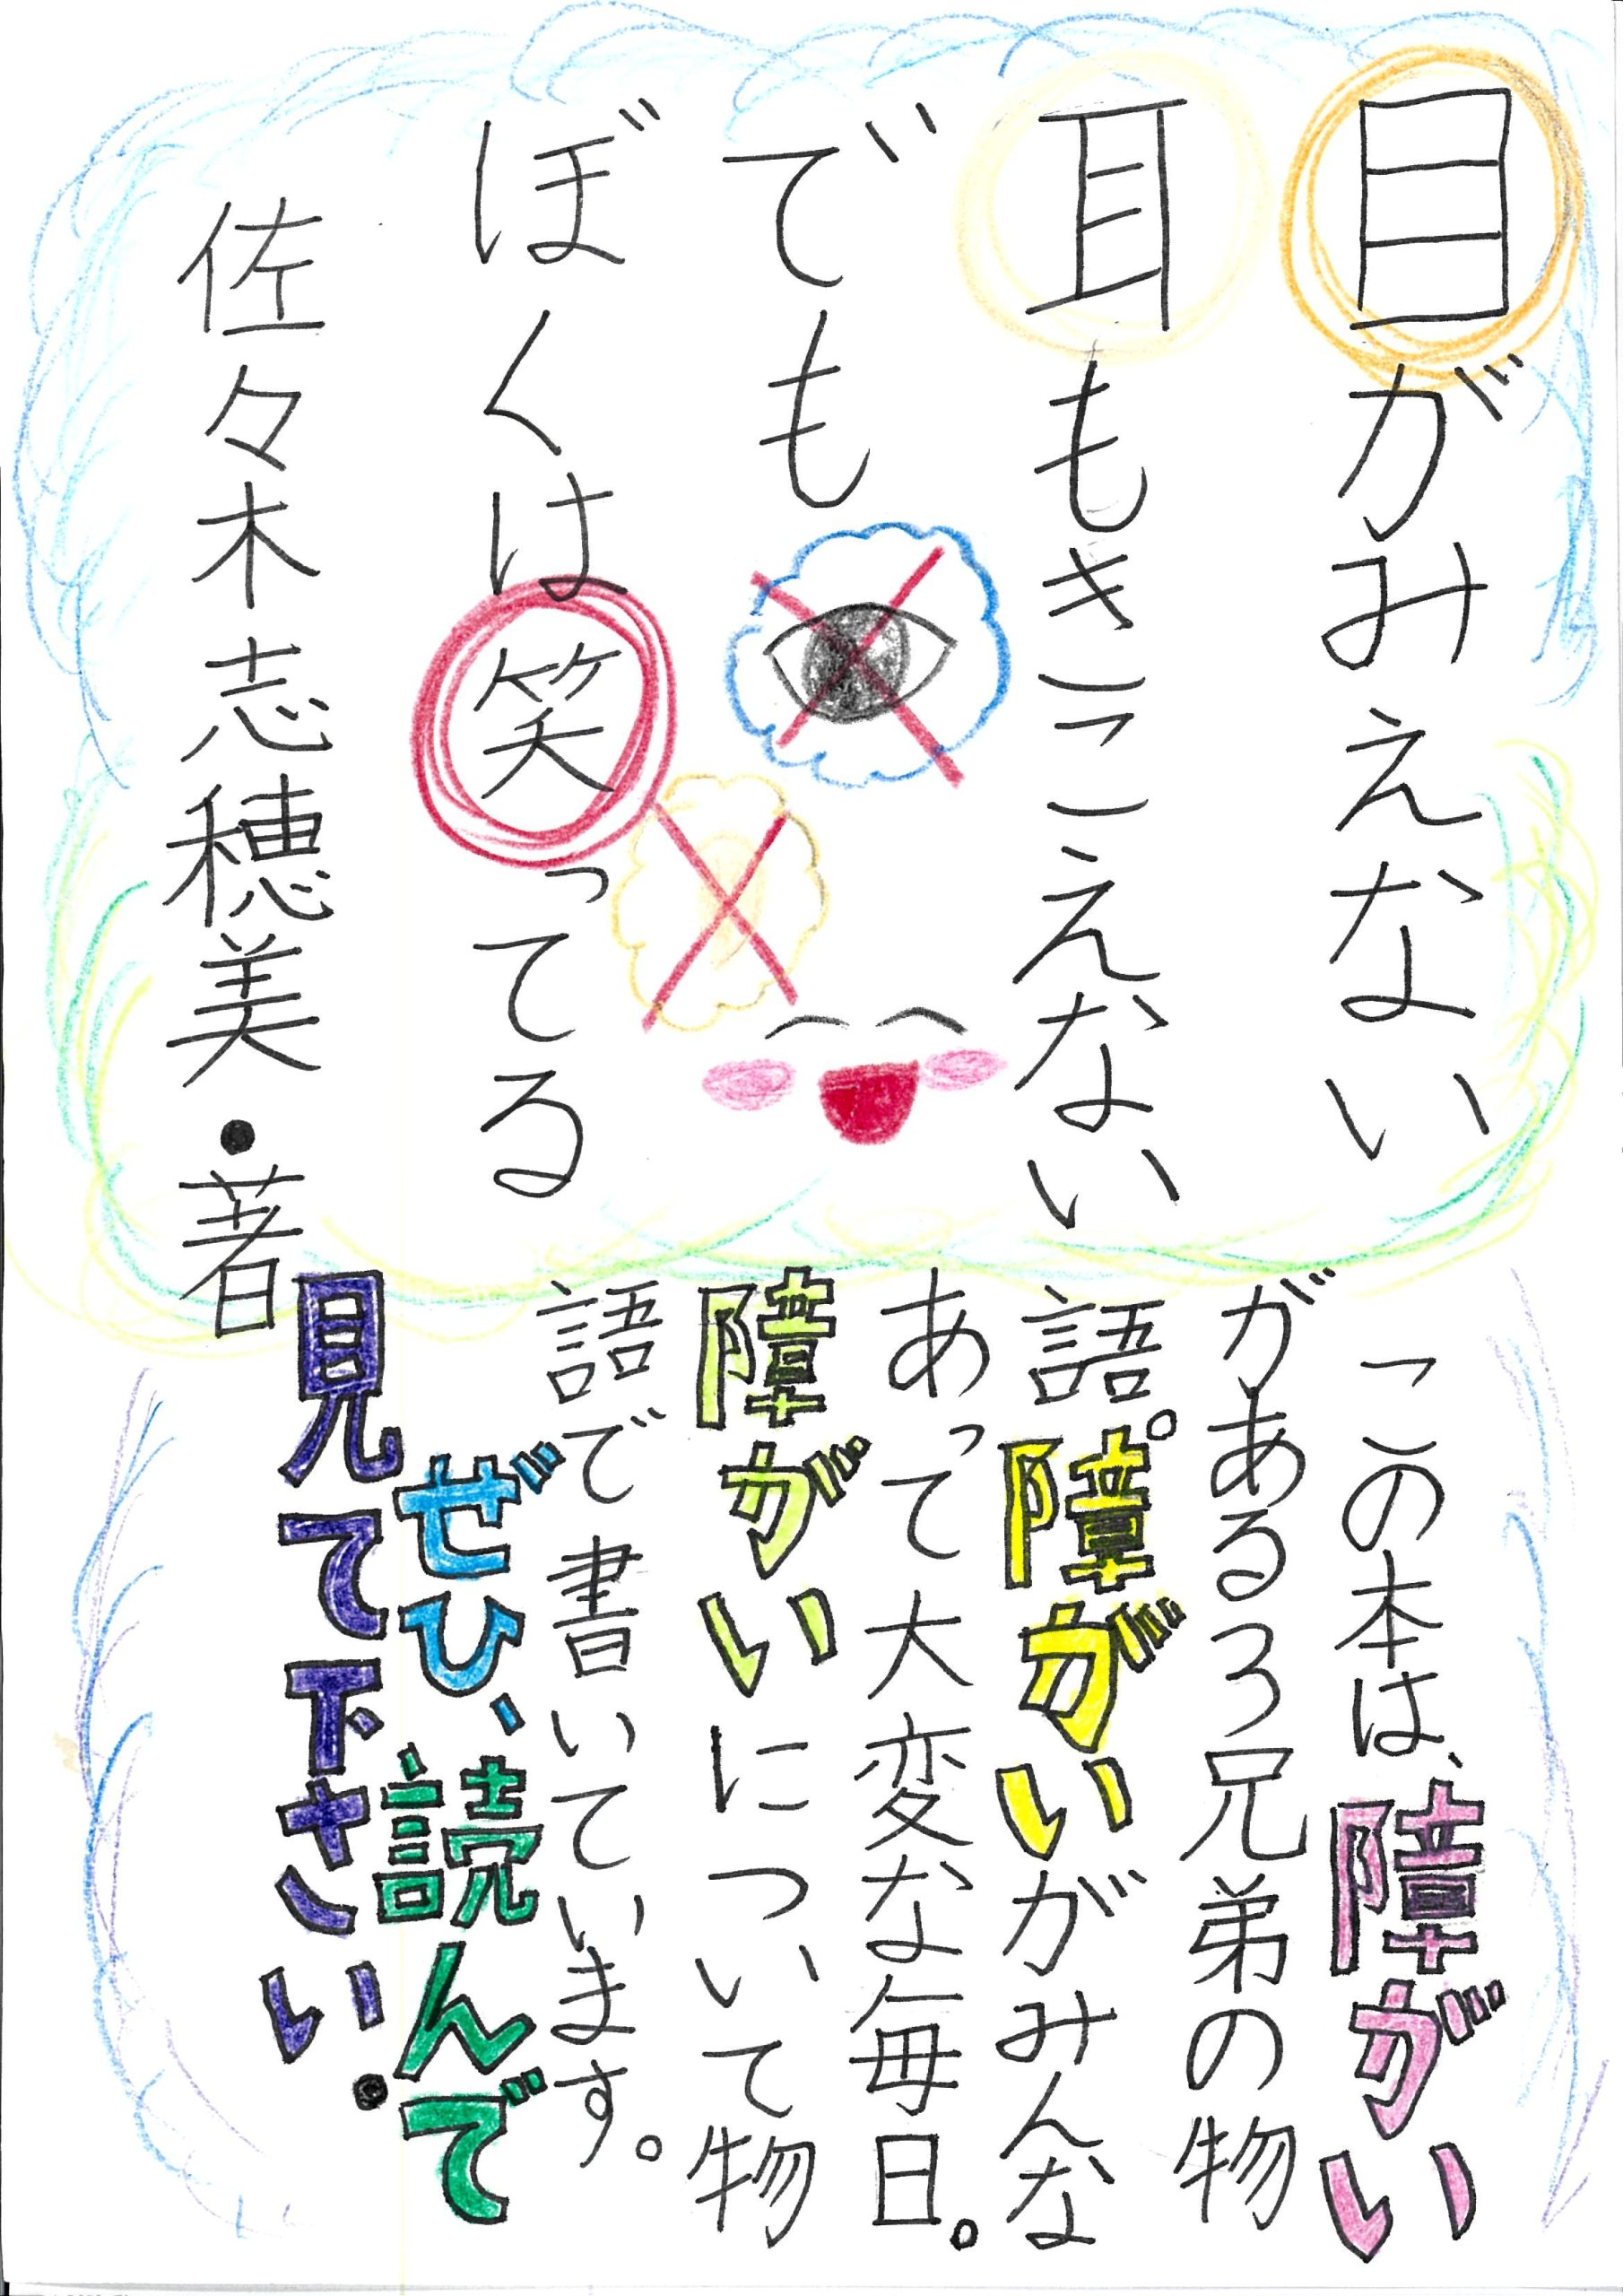 目がみえない
耳もきこえない
でも
ぼくは笑ってる
佐々木志穂美・著
この本は、障がい
がある3兄弟の物
語。障がいがみんな
あって大変な毎日。
障がいについて物
語で書いています。
ぜひ、読んで
見て下さい.